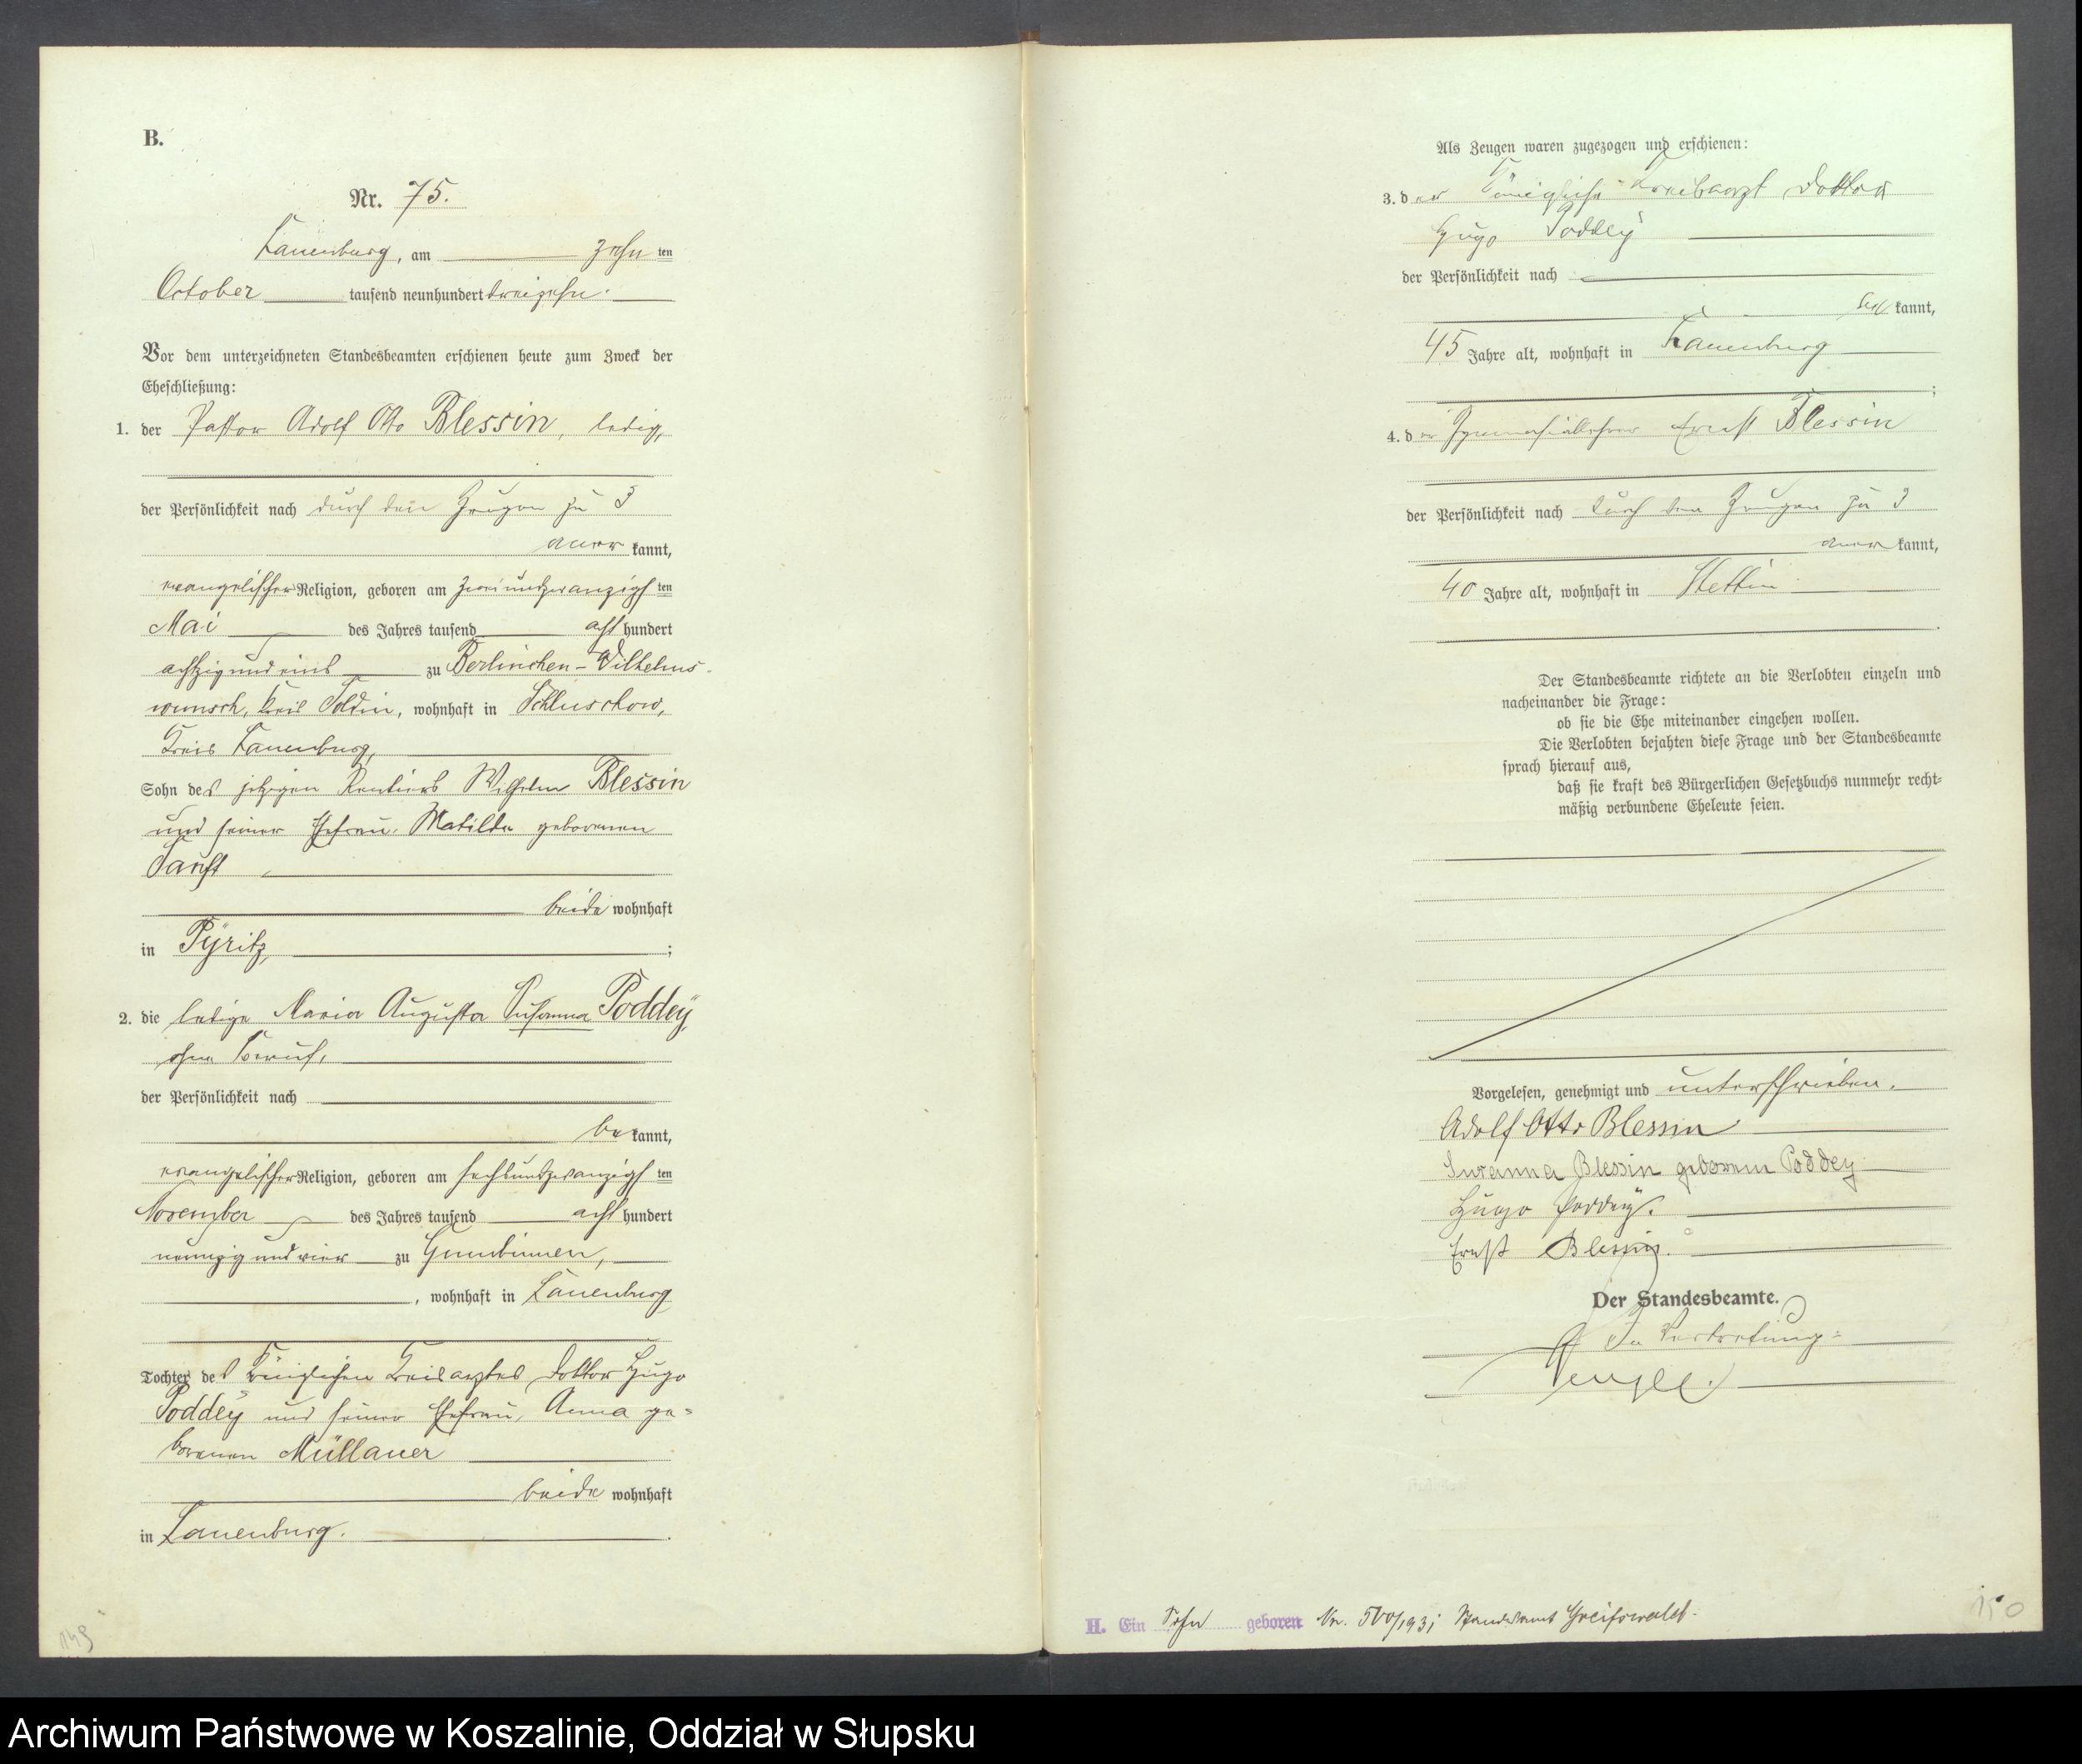 B.
Nr. 75.
Lauenburg, am zehn ten
October tausend neunhundert dreizehn.
Vor dem unterzeichneten Standesbeamten erschienen heute zum Zweck der
Eheschließung:
1. der Pastor Adolf Otto Blessin, ledig,
der Persönlichkeit nach durch den Zeugen zu 3
aner kannt,
evangelischer Religion, geboren am zweiundzwanzigst ten
Mai des Jahres tausend acht hundert
achtzig und eins zu Berlinchen-Wilhelms-
wunsch, Kreis Soldin, wohnhaft in Schluschow,
Kreis Lauenburg,
Sohn des jetzigen Rentiers Wilhelm Blessin
und seiner Ehefrau, Matilde geborenen
beide wohnhaft
in Pyritz, ;
2. die ledige Maria Augusta Susanna Poddey,
ohne Beruf,
der Persönlichkeit nach
be kannt,
evangelischer Religion, geboren am sechsundzwanzigst ten
November des Jahres tausend acht hundert
neunzig und vier zu Gumbinnen,
, wohnhaft in Lauenburg
Tochter des Königlichen Kreisarztes Doktor Hugo
Poddey und seiner Ehefrau, Anna ge=
borenen Müllauer
beide wohnhaft
in Lauenburg.
149
Als Zeugen waren zugezogen und erschienen:
3. der Königliche Kreisarzt Doktor
Hugo Poddey
der Persönlichkeit nach
be kannt,
45 Jahre alt, wohnhaft in Lauenburg
;
4. der Gymnasiallehrer Ernst Blessin
der Persönlichkeit nach durch den Zeugen zu 3
aner kannt,
40 Jahre alt, wohnhaft in Stettin
.
Der Standesbeamte richtete an die Verlobten einzeln und
nacheinander die Frage:
ob sie die Ehe miteinander eingehen wollen.
Die Verlobten bejahten diese Frage und der Standesbeamte
sprach hierauf aus,
daß sie kraft des Bürgerlichen Gesetzbuchs nunmehr recht=
mäßig verbundene Eheleute seien.
Vorgelesen, genehmigt und unterschrieben.
Adolf Otto Blessin
Susanna Blessin geborene Poddey
Hugo Poddey.
Ernst Blessin.
Der Standesbeamte.
In Vertretung:
H. Ein Sohn geboren Nr. Standesamt Greifswald.
150
Archiwum Państwowe w Koszalinie, Oddział w Słupsku